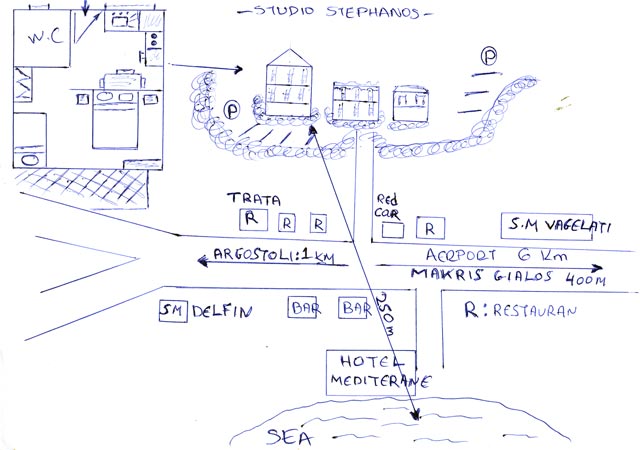 - STUDIO STEPHANOS -
W.C
P
P
TRATA
R R R
RED CAR
R
S.M VAGELATI
ARGOSTOLI: 1 KM
AERPORT 6 Km
MAKRIS GIALOS 400M
SM DELFIN
BAR BAR
250 m
R: RESTAURAN
HOTEL
MEDITERANE
SEA